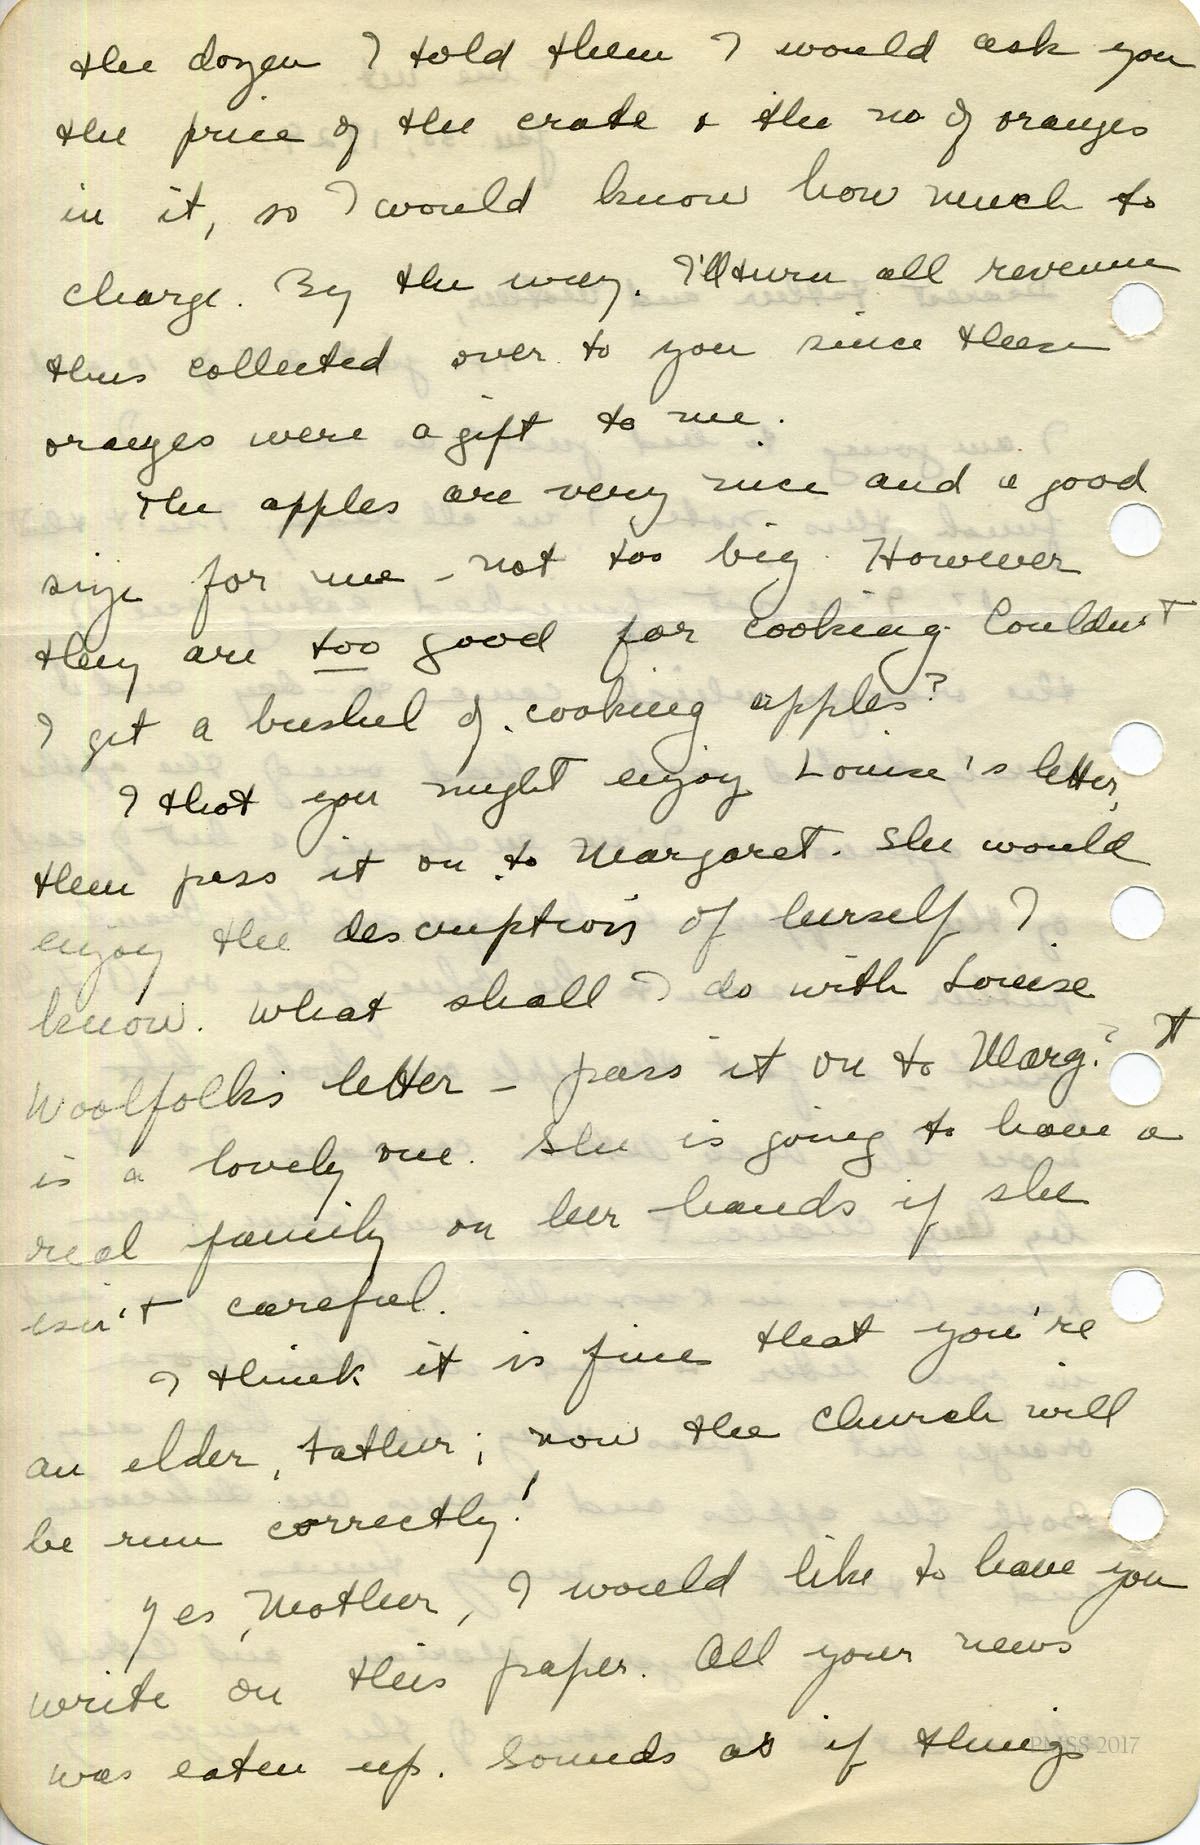 the dozen I told them I would ask you
the price of the crate & the no of oranges
in it, so I would know how much to
charge. By the way. I'll turn all revenue
thus collected over to you since these
oranges were a gift to me.
The apples are very nice and a good
size for me - not too big. However
they are too good for cooking. Couldn't
I get a bushel of cooking apples?
I thot you might enjoy Louise's letter,
then pass it on to Margaret. She would
enjoy the description of herself I
know. What shall I do with Louise
Woolfolk's letter - pass it on to Marg.? It
is a lovely one. She is going to have a
real family on her hands if she
isn't careful.
I think it is fine that you're
an elder, Father; now the church will
be run correctly!
Yes, Mother, I would like to have you
write on this paper. All your news
was eaten up. Sounds as if things
2017